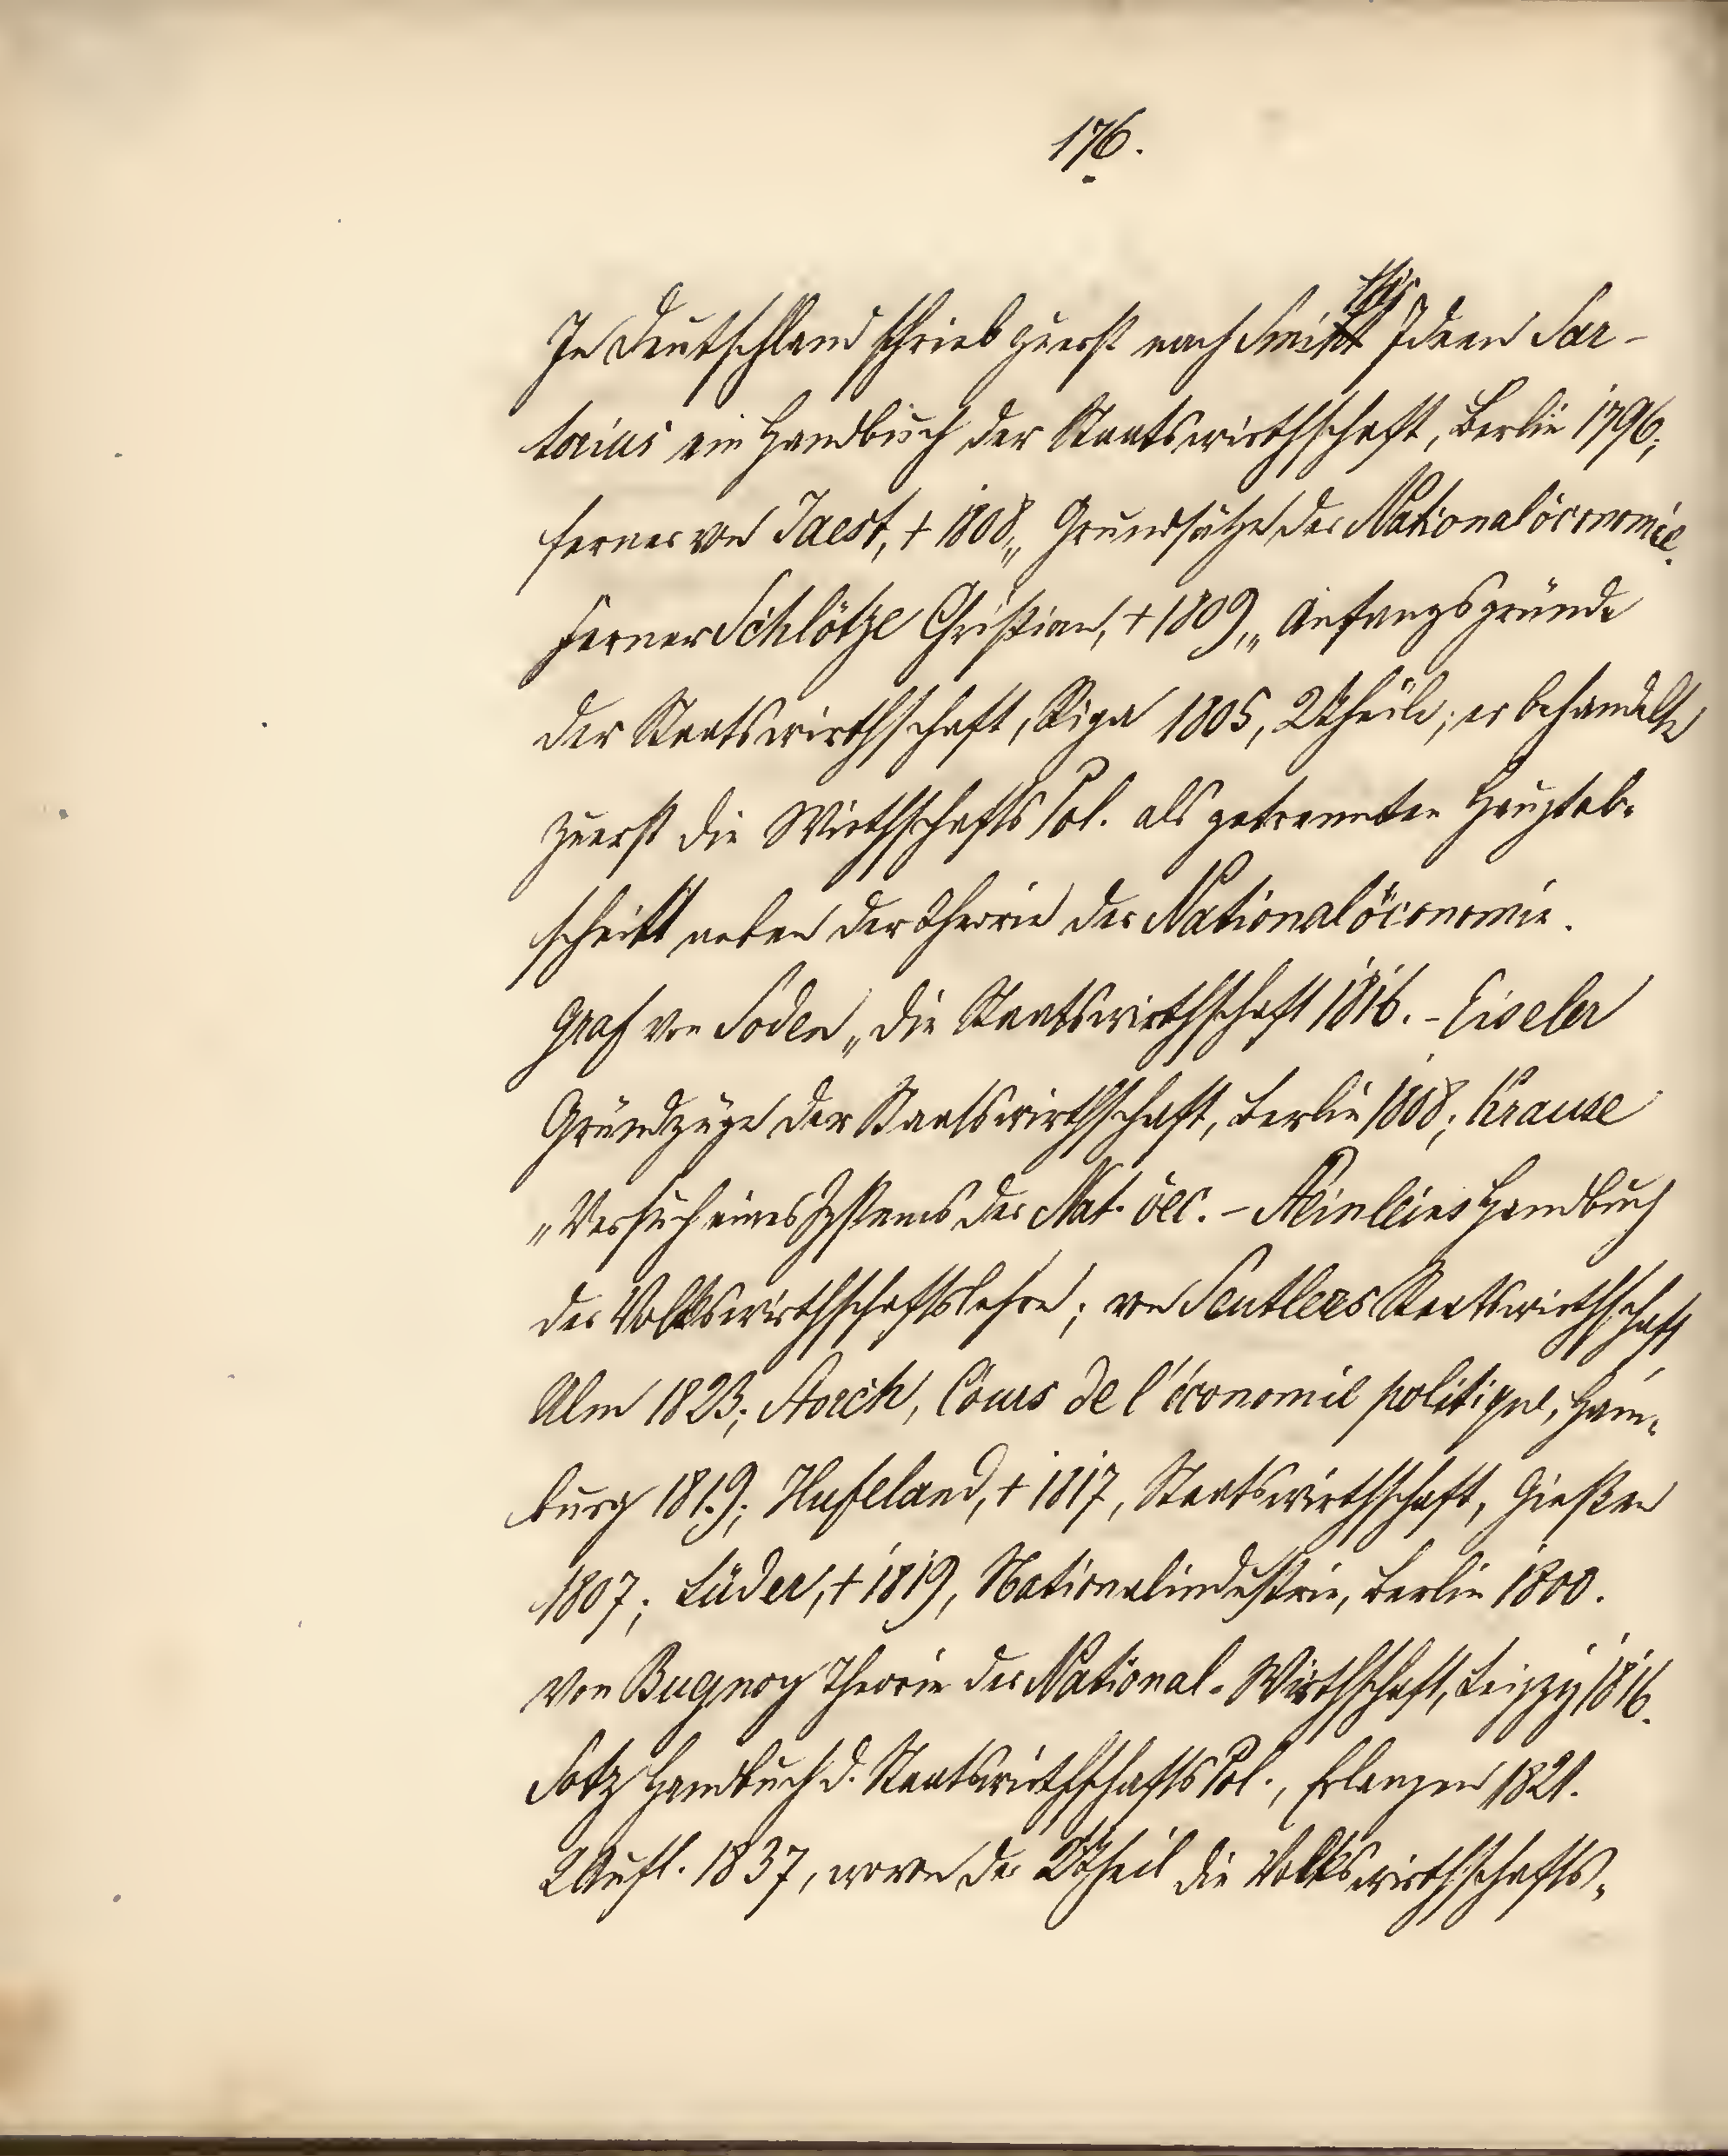 176.
In Deutschland schrieb zuerst nach Smiths Ideen Sar-
torius ein Handbuch der Staatswirthschaft, Berlin 1796,
ferner von Jaest, † 1808, „Grundsätze der Nationalöconomie.
Ferner Schlötze Christian, † 1809, „Anfangsgründe
der Staatswirthschaft, Riga 1805, 2 Theile; er behandelte
zuerst die WirthschaftsPol. als getrennten Hauptab-
schnitt neben der Theorie der Nationalöconomie.
Graf von Soden „die Staatswirthschaft 1816. - Eiseler
Grundzüge der Staatswirthschaft, Berlin 1808; Krause
„Versuch eines Systems der Nat. öec. - Steinleins Handbuch
der Volkswirthschaftslehre; von Seutlers Staatswirthschaft
Ulm 1823; Storch, Cours de l'économie politique, Ham-
burg 1819; Hufeland, † 1817, Staatswirthschaft, Gießen
1807; Lüder, † 1819, Nationalindustrie, Berlin 1800.
Von Buquoy Theorie der National-Wirthschaft, Leipzig 1816.
Lotz Handbuch d. StaatswirthschaftsPol., Erlangen 1821.
2 Aufl. 1837, wovon der 2 Theil die Volkswirthschafts-